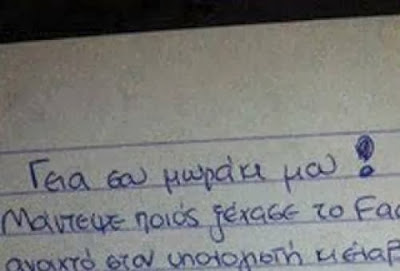 Γεια σου μωράκι μου!
Μάντεψε ποιός ξέχασε το Fac
ανοιχτό στον υπολογιστή κ